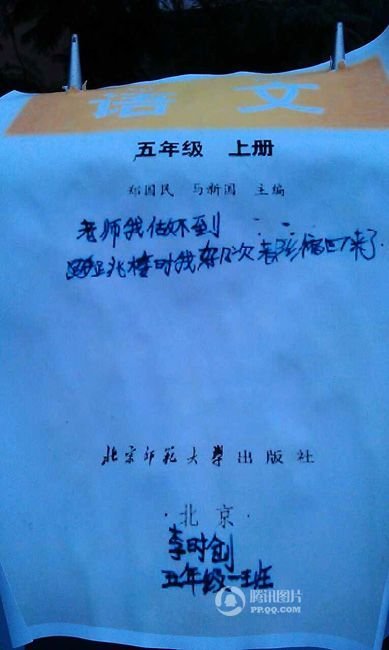 语文
五年级 上册
郑国民 马新国 主编
老师我做不到
跳时我好几次都缩回来了
北京师范大学出版社
·北京·
李时创
五年级一班
腾讯图片
PP.QQ.COM